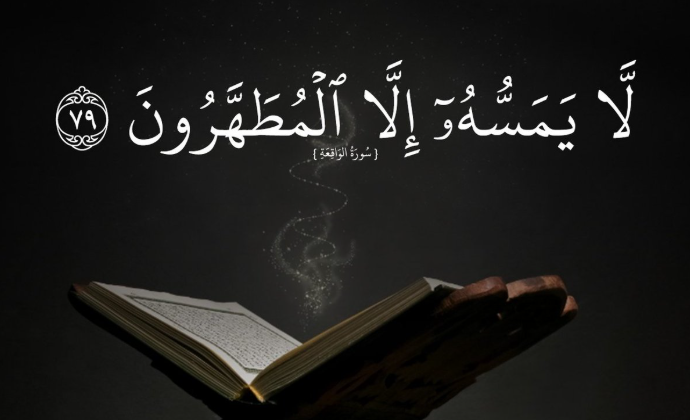 لَّا يَمَسُّهُۥٓ إِلَّا ٱلْمُطَهَّرُونَ ٧٩
{ سُورَةُ الوَاقِعَةِ }